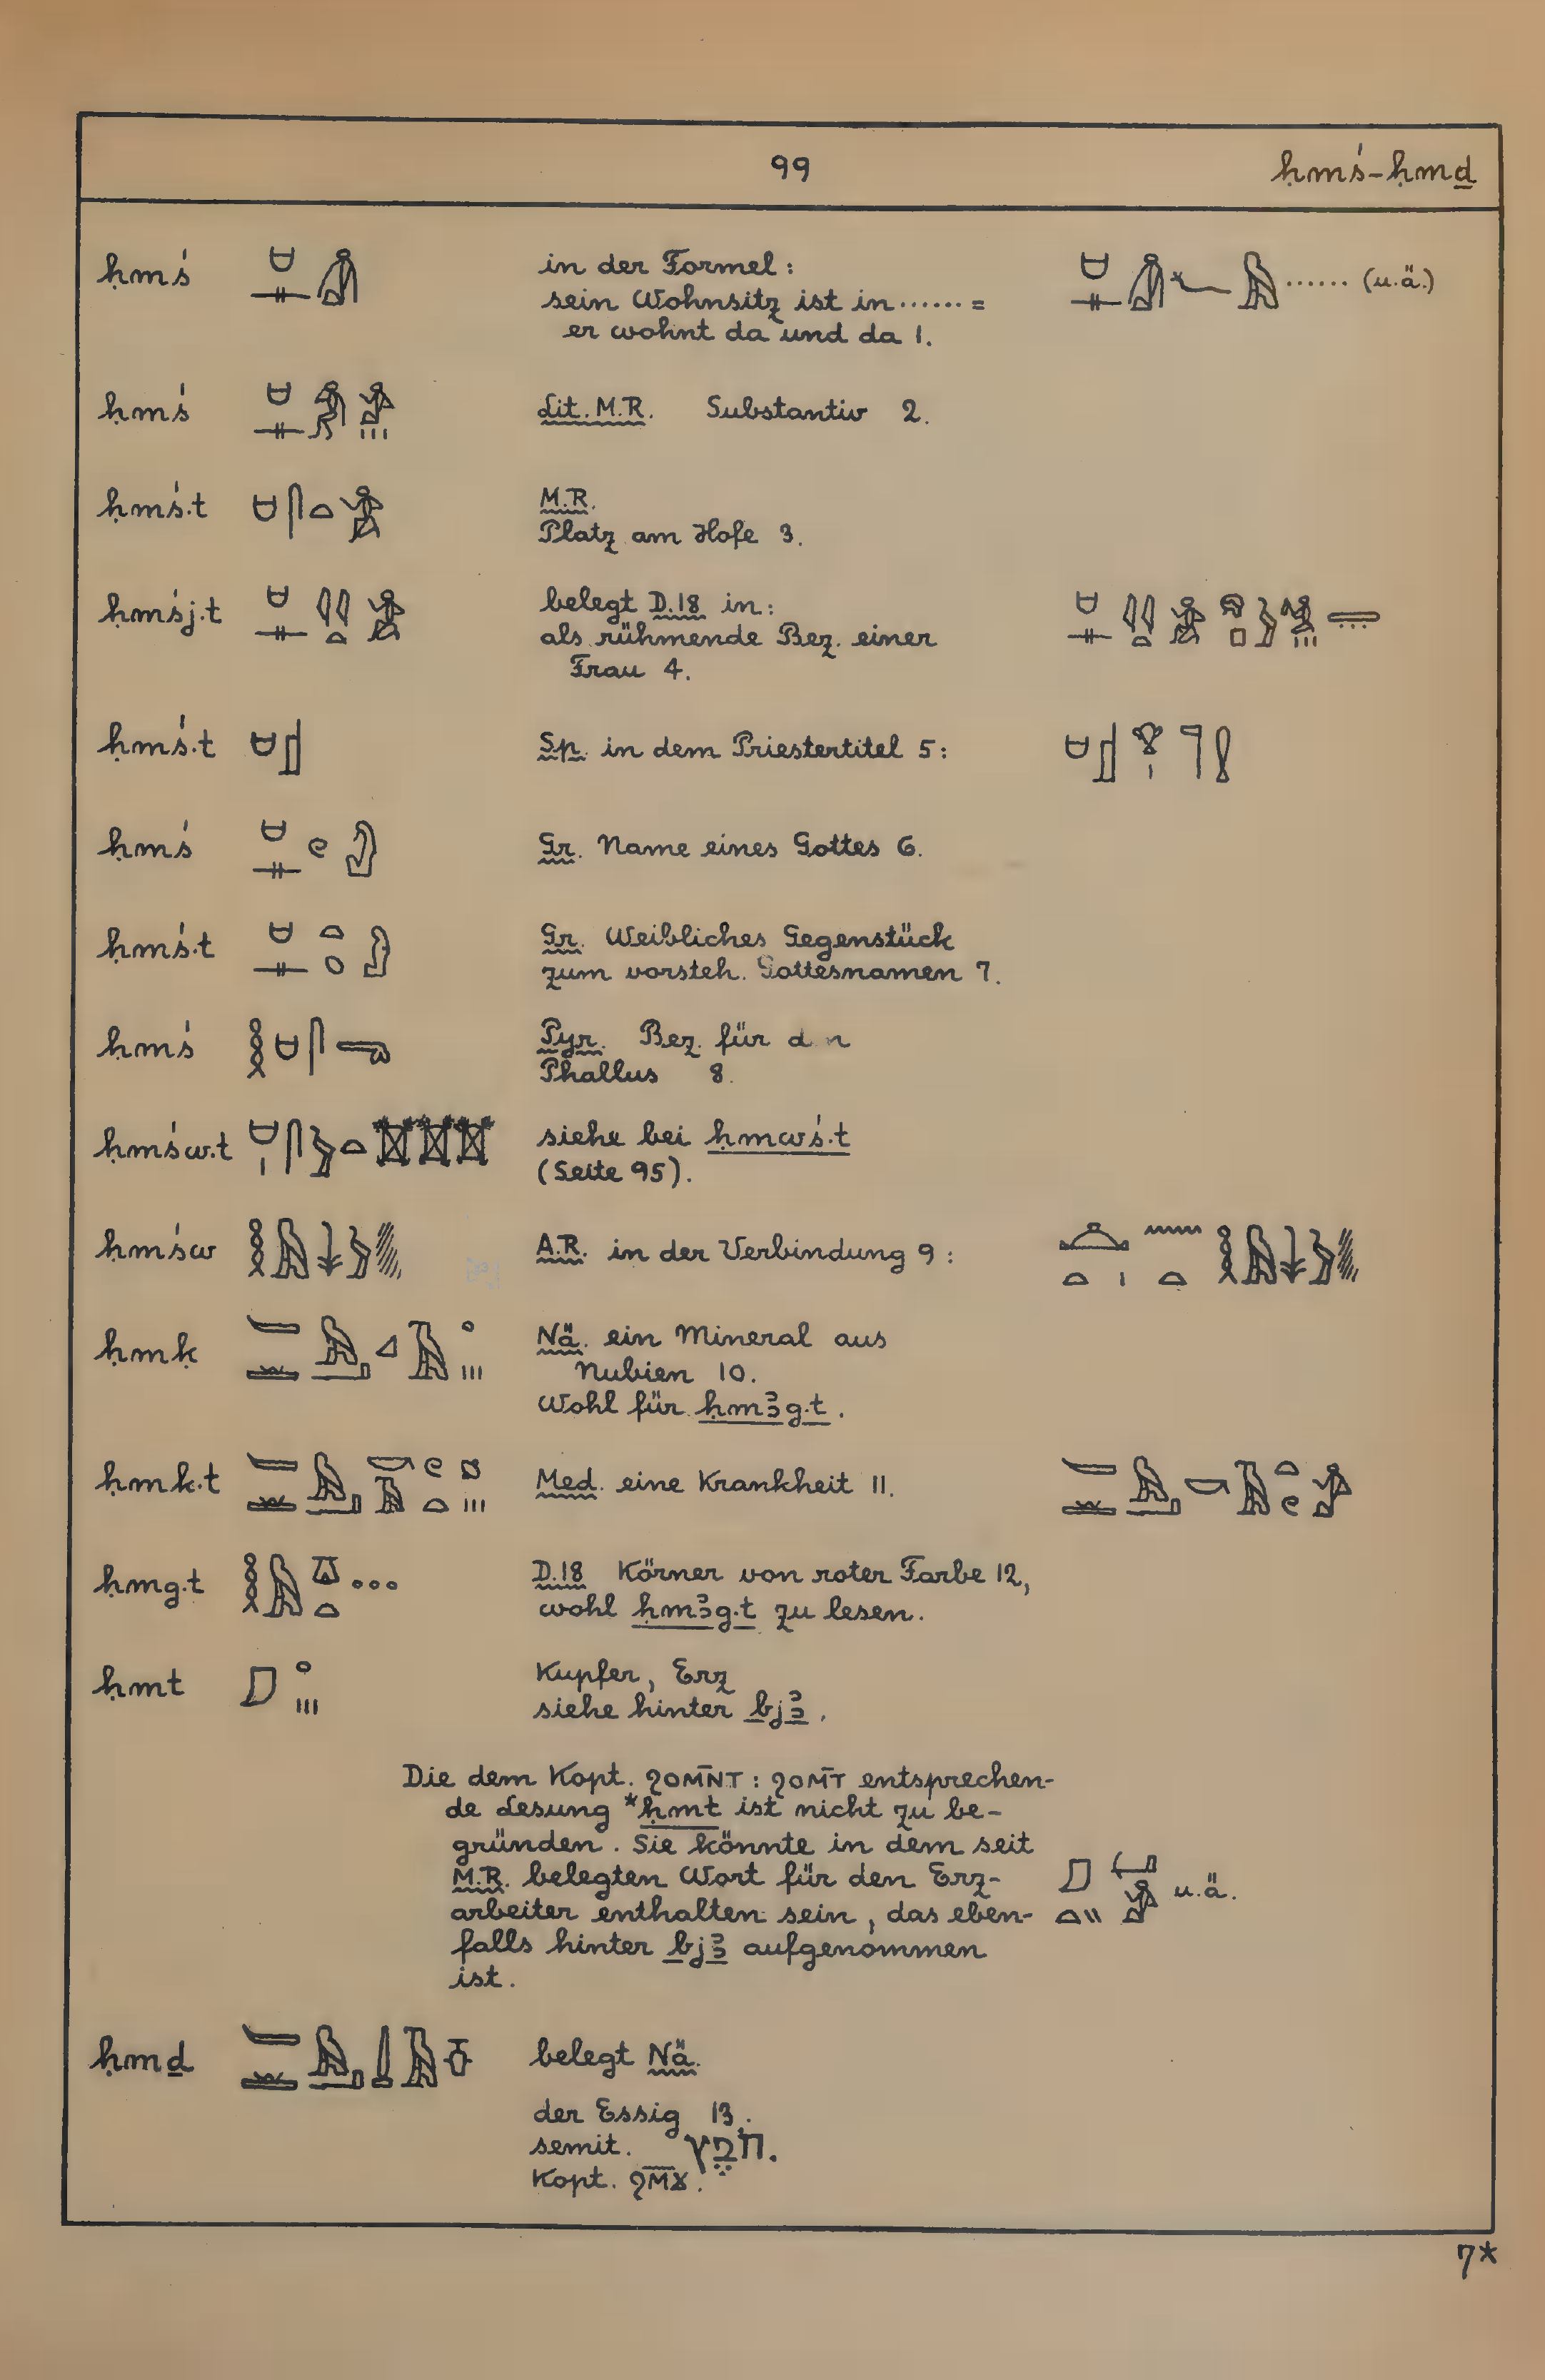 99
ḥmś-ḥmḏ
ḥmś
in der Formel:
sein Wohnsitz ist in ...... =
er wohnt da und da 1.
...... (u.ä.)
ḥmś
Lit. M.R. Substantiv 2.
ḥmś.t
M.R.
Platz am Hofe 3.
ḥmśj.t
belegt D.18 in:
als rühmende Bez. einer
Frau 4.
ḥmś.t
Sp. in dem Priestertitel 5:
ḥmś
Gr. Name eines Gottes 6.
ḥmś.t
Gr. Weibliches Gegenstück
zum vorsteh. Gottesnamen 7.
ḥmś
Pyr. Bez. für d n
Phallus 8.
ḥmśw.t
siehe bei ḥmwś.t
(Seite 95).
ḥmśw
A.R. in der Verbindung 9:
ḥmḳ
Nä. ein Mineral aus
Nubien 10.
Wohl für ḥmꜣg.t.
ḥmk.t
Med. eine Krankheit 11.
ḥmg.t
D.18 Körner von roter Farbe 12,
wohl ḥmꜣg.t zu lesen.
ḥmt
Kupfer, Erz
siehe hinter bjꜣ.
Die dem Kopt. ϩⲟⲙ̅ⲛⲧ : ϩⲟⲙ̅ⲧ entsprechen-
de Lesung *ḥmt ist nicht zu be-
gründen. Sie könnte in dem seit
M.R. belegten Wort für den Erz-
arbeiter enthalten sein, das eben- u.ä.
falls hinter bjꜣ aufgenommen
ist.
ḥmḏ
belegt Nä.
der Essig 13.
semit. חֹמֶץ.
Kopt. ϩⲙ̅ϫ.
7*